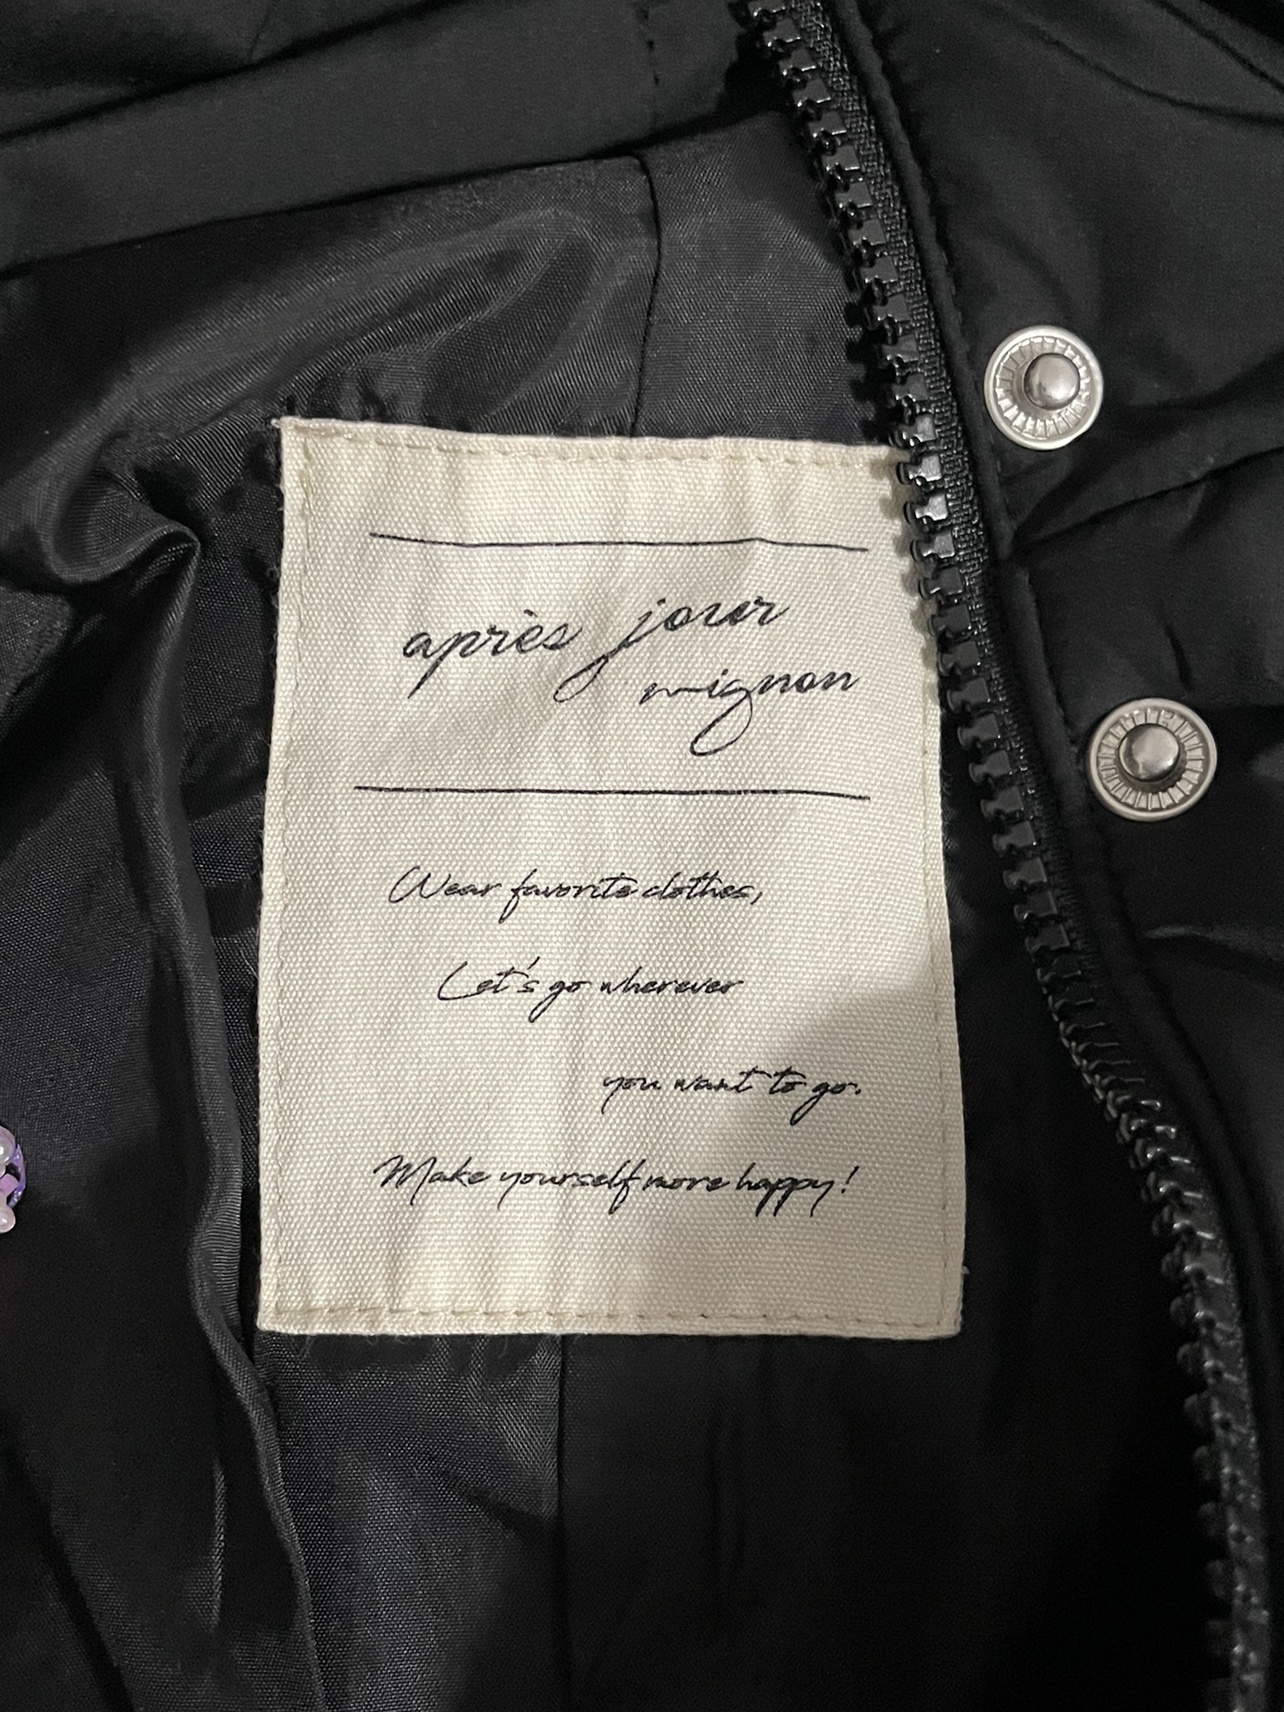 après jouer
mignon
Wear favorite clothes,
Let's go wherever
you want to go.
Make yourself more happy!